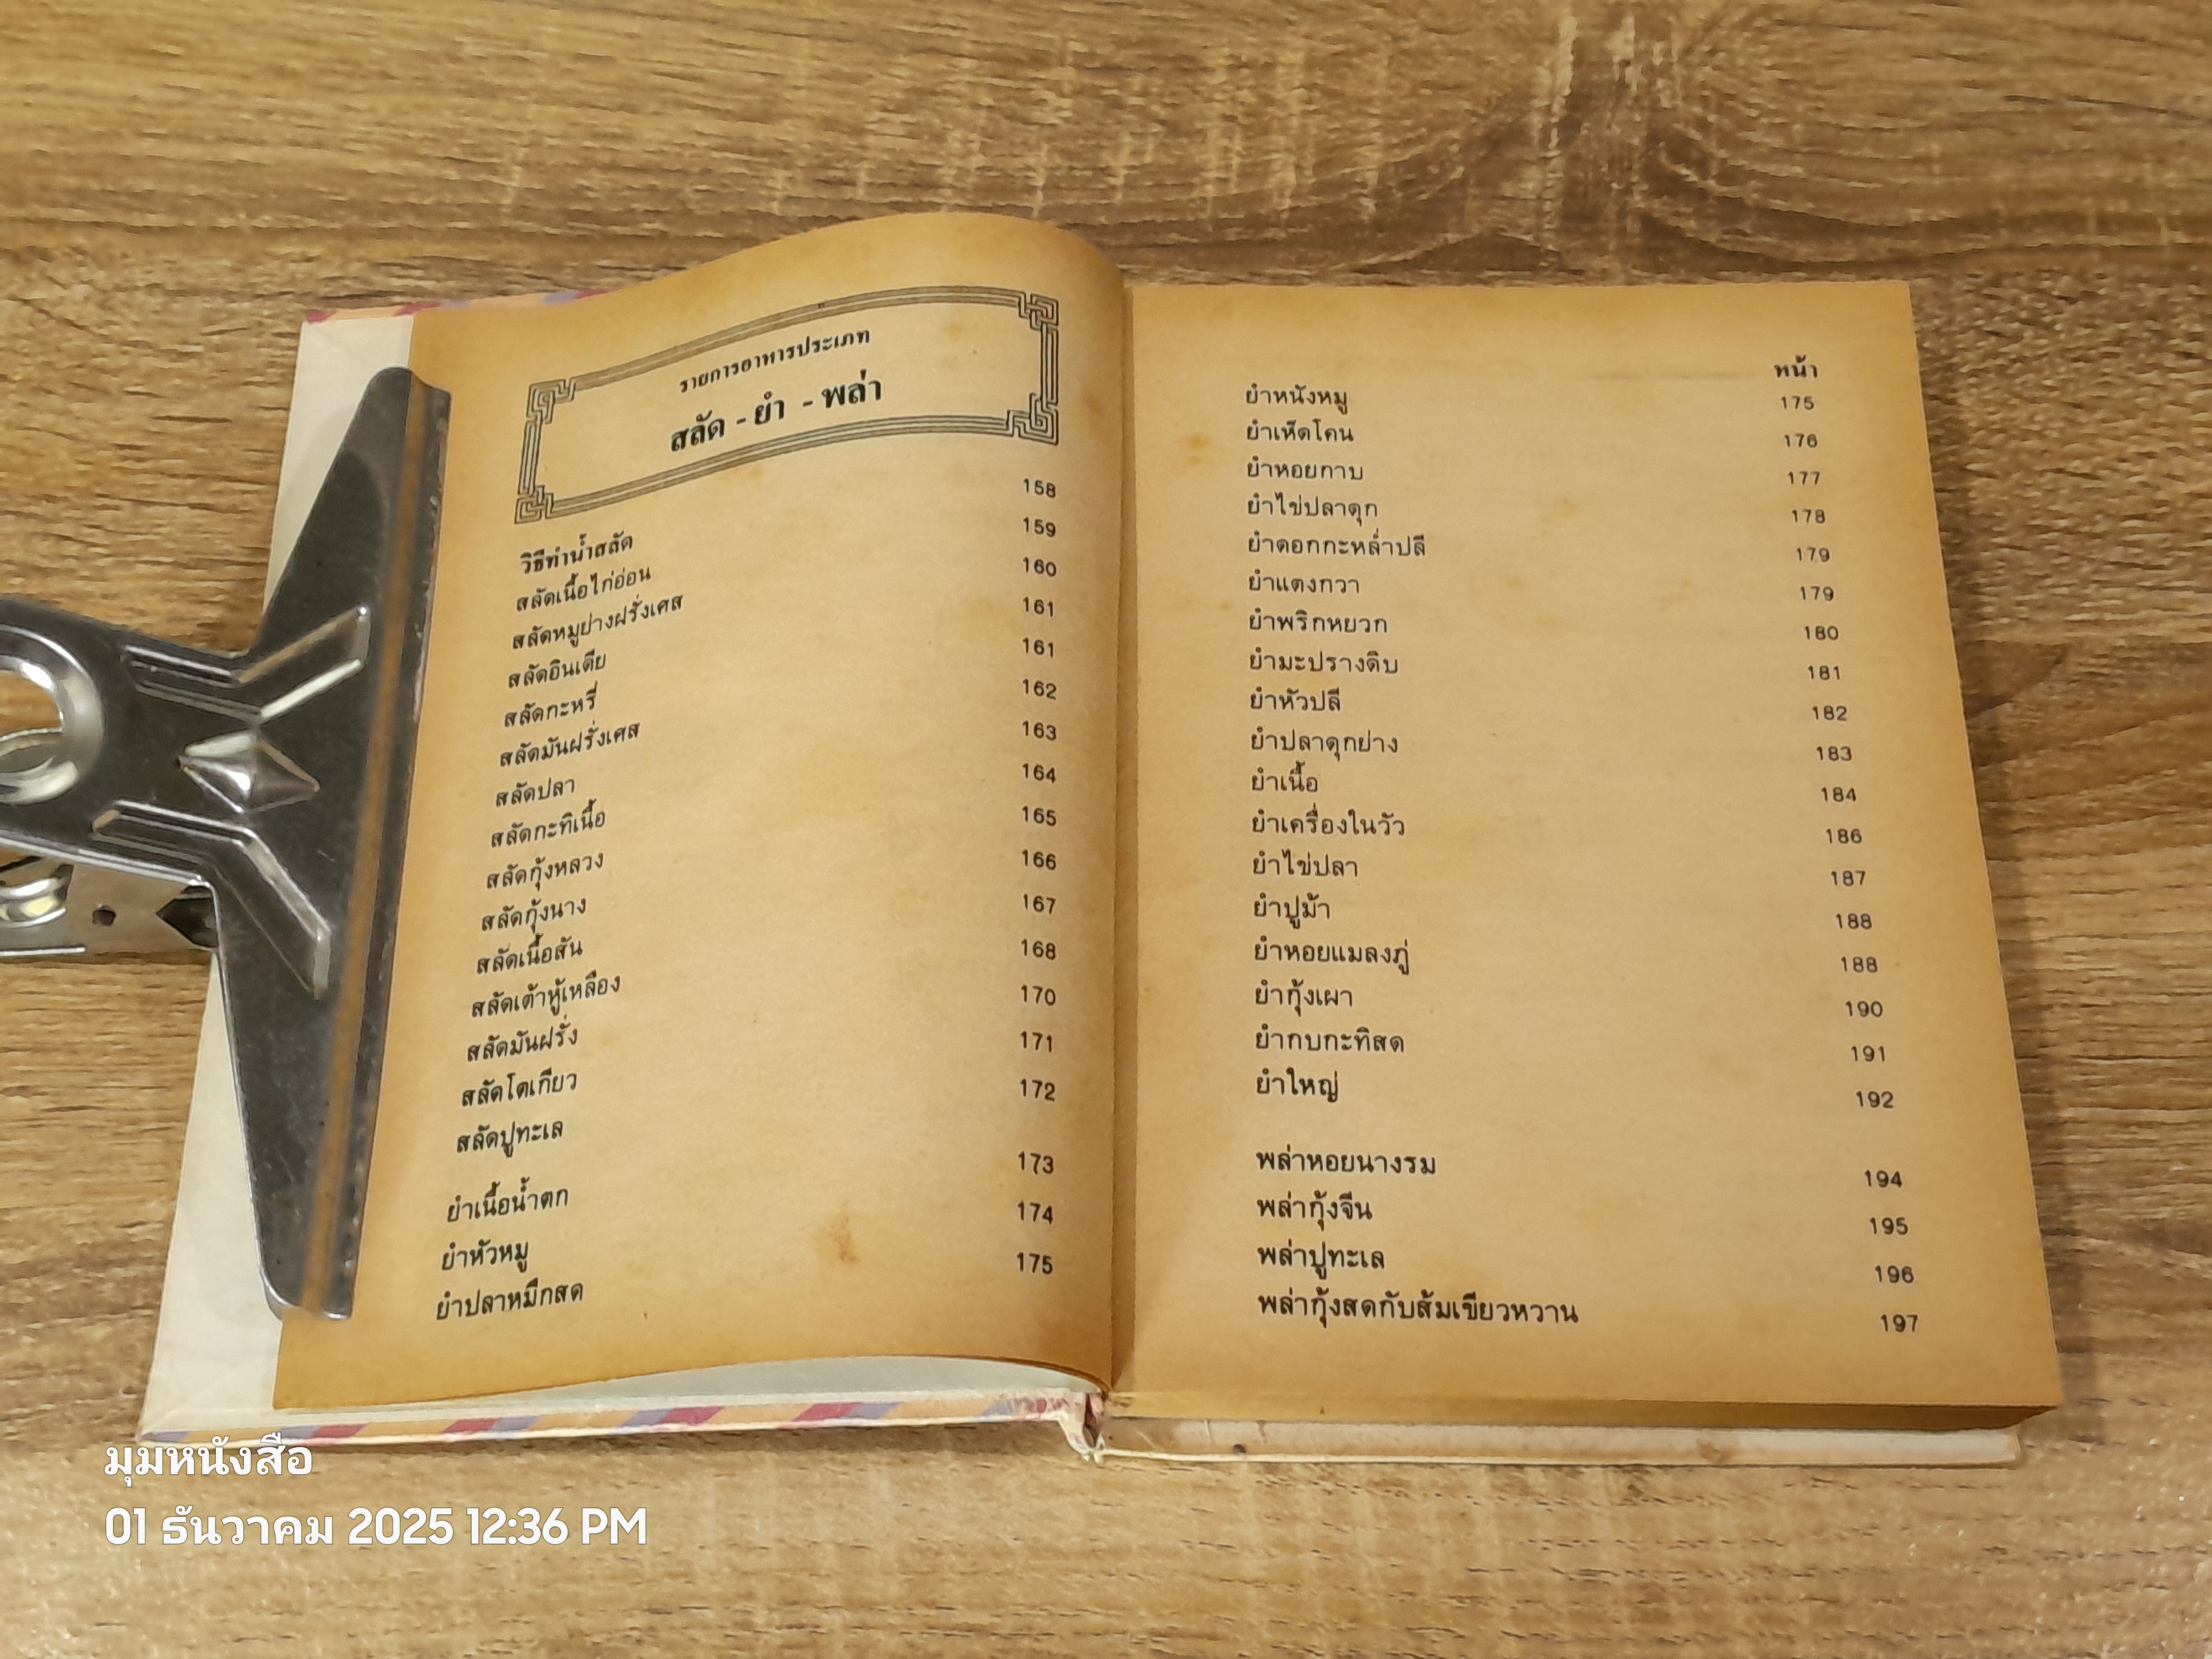 รายการอาหารประเภท
สลัด - ยำ - พล่า
วิธีทำน้ำสลัด 158
สลัดเนื้อไก่อ่อน 159
สลัดหมูย่างฝรั่งเศส 160
สลัดอินเดีย 161
สลัดกะหรี่ 161
สลัดมันฝรั่งเศส 162
สลัดปลา 163
สลัดกะทิเนื้อ 164
สลัดกุ้งหลวง 165
สลัดกุ้งนาง 166
สลัดเนื้อสัน 167
สลัดเต้าหู้เหลือง 168
สลัดมันฝรั่ง 170
สลัดโตเกียว 171
สลัดปูทะเล 172
ยำเนื้อน้ำตก 173
ยำหัวหมู 174
ยำปลาหมึกสด 175
หน้า
ยำหนังหมู 175
ยำเห็ดโคน 176
ยำหอยกาบ 177
ยำไข่ปลาดุก 178
ยำดอกกะหล่ำปลี 179
ยำแตงกวา 179
ยำพริกหยวก 180
ยำมะปรางดิบ 181
ยำหัวปลี 182
ยำปลาดุกย่าง 183
ยำเนื้อ 184
ยำเครื่องในวัว 186
ยำไข่ปลา 187
ยำปูม้า 188
ยำหอยแมลงภู่ 188
ยำกุ้งเผา 190
ยำกบกะทิสด 191
ยำใหญ่ 192
พล่าหอยนางรม 194
พล่ากุ้งจีน 195
พล่าปูทะเล 196
พล่ากุ้งสดกับส้มเขียวหวาน 197
มุมหนังสือ
01 ธันวาคม 2025 12:36 PM